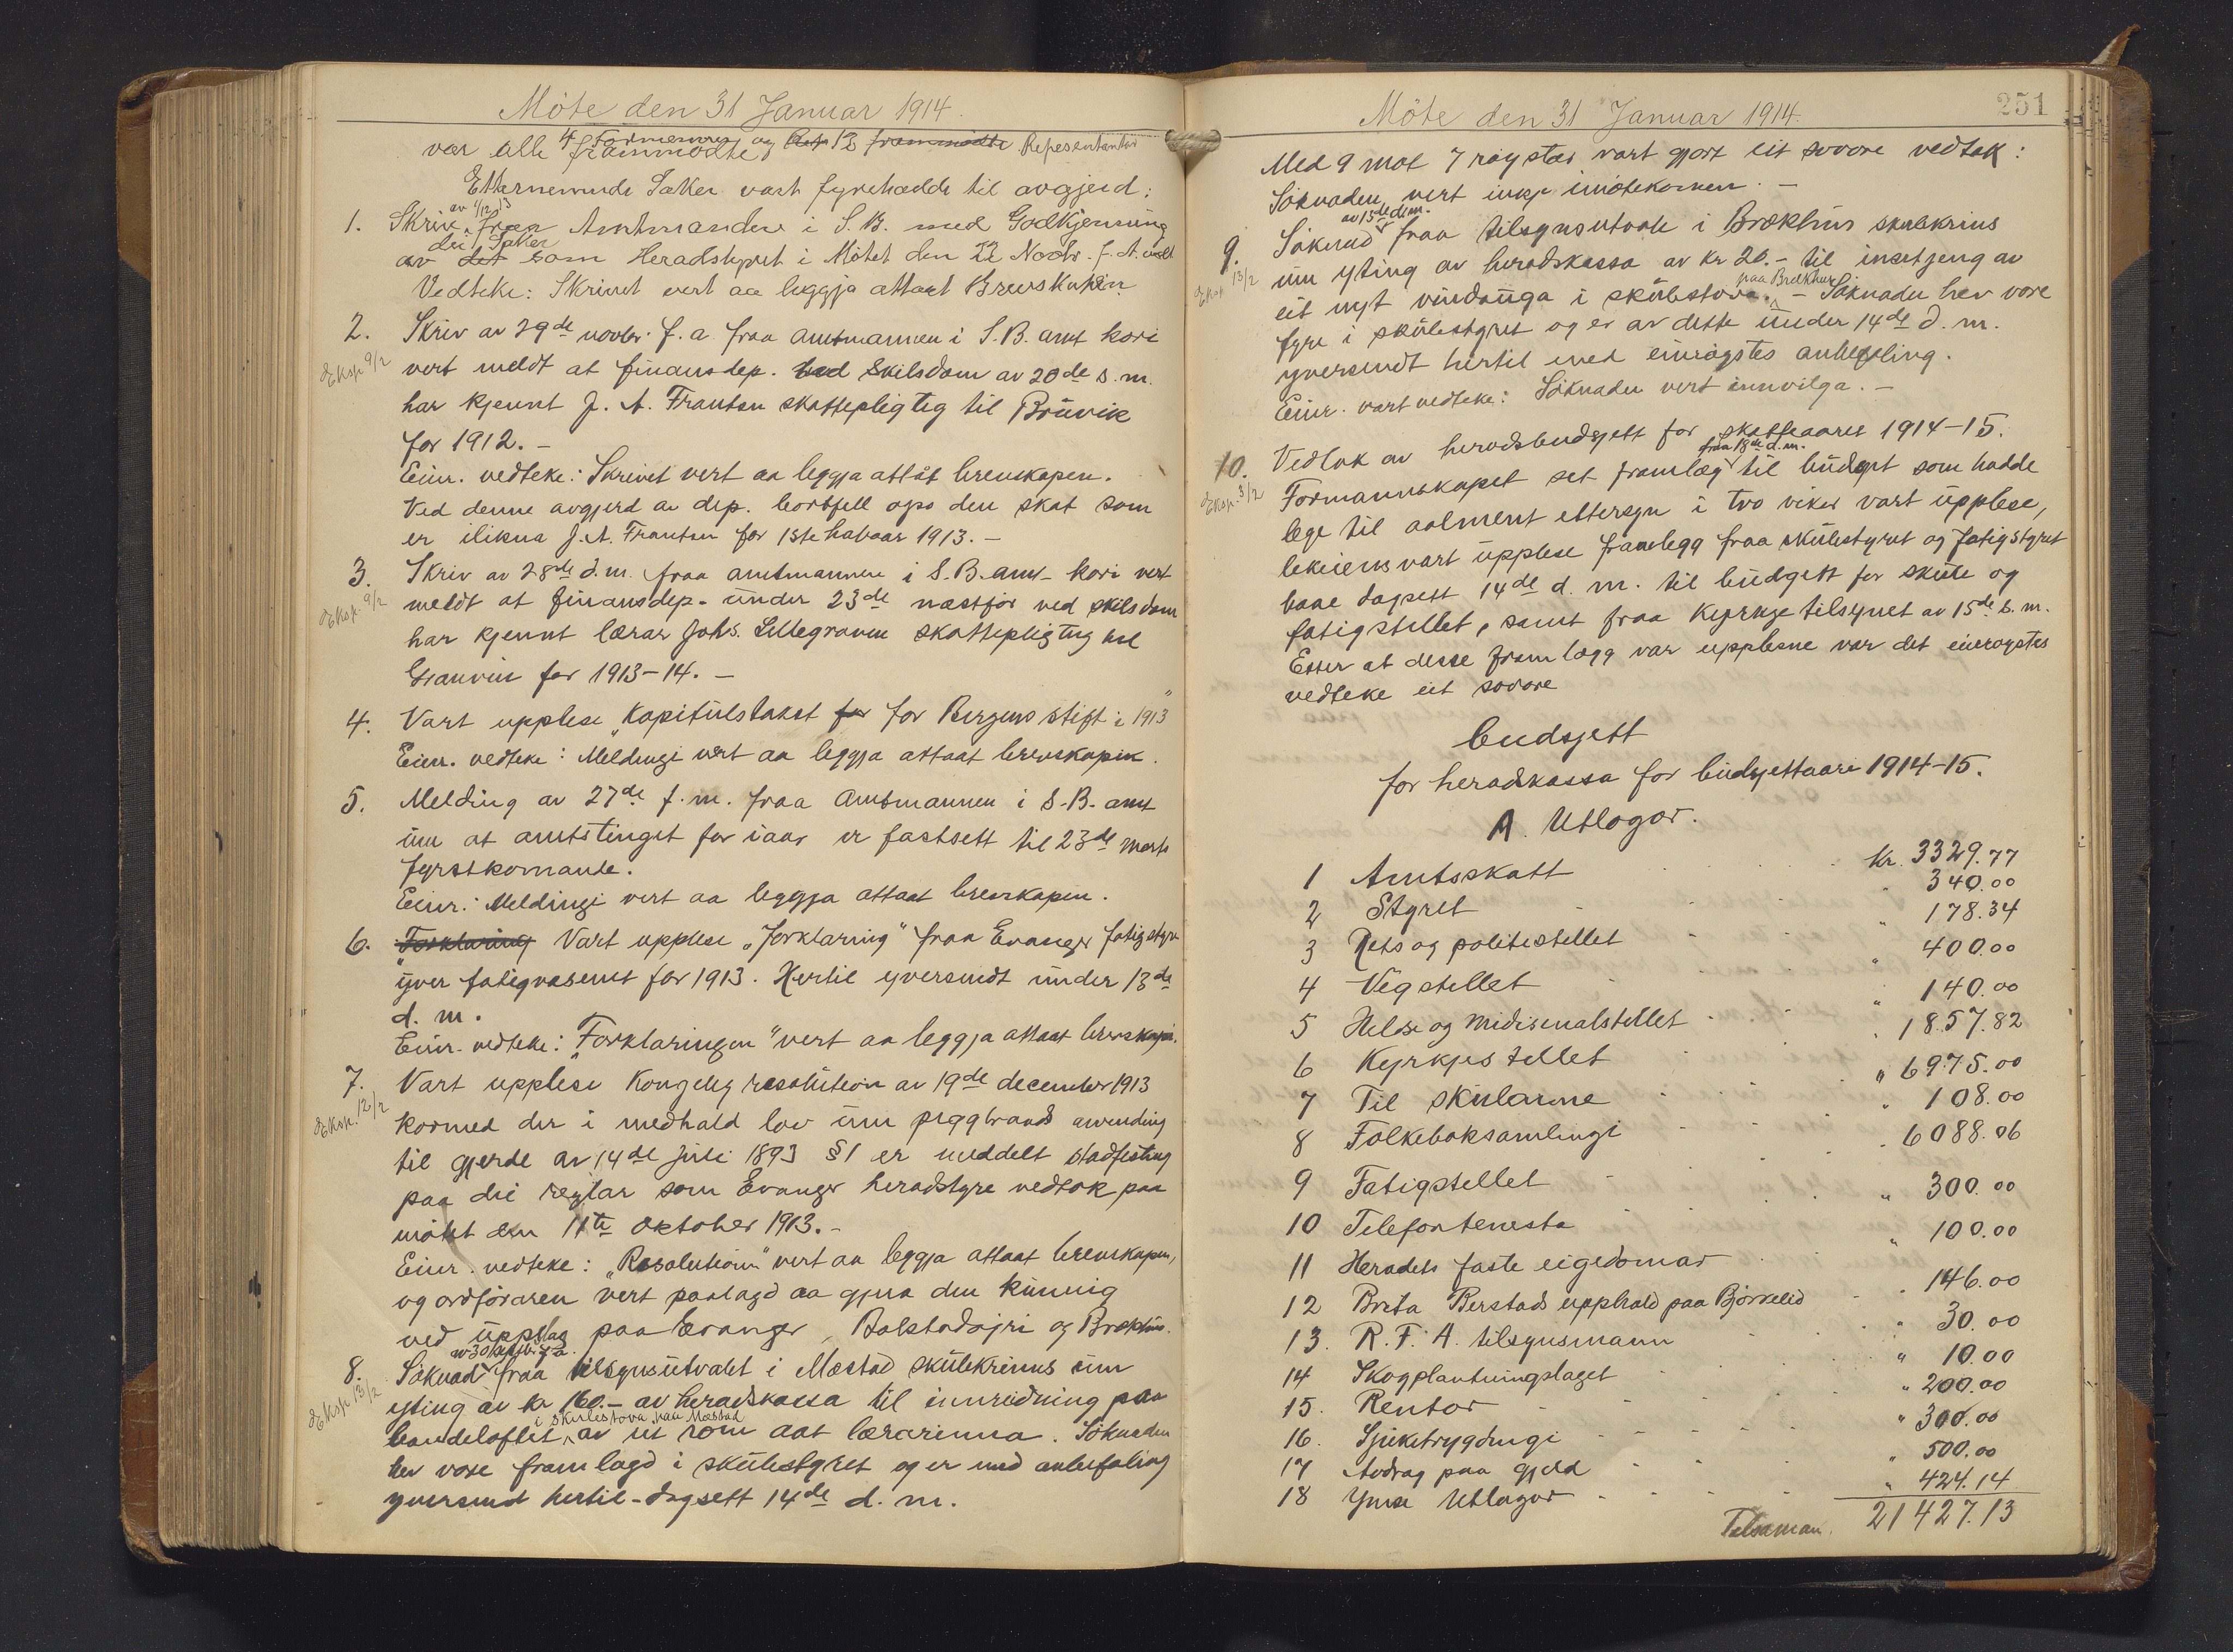 Möte den 31 Januar 1914.
var alle 4 Formennene og 12 frammödte Representantar
frammödte
Etternemnde Saker vart fyrehadde til avgjerd:
1. Skriv av 1/12 13 fraa Amtmanden i S. B. med Godkjenning
av det dei Saker som Heradstyret i Mötet den 22 Novbr. f. A.
Vedteke: Skrivet vert aa leggja attaat Brevskapen.
2. Skriv av 29de novbr. f. a. fraa amtmannen i S. B. amt kori
Eksp. 9/2
vert meldt at finansdep. ved skilsdom av 20de s. m.
har kjennt J. A. Frantsen skattepligtig til Bruvik
for 1912. –
Einr. vedteke: Skrivet vert aa leggja attåt brevskapen.
Ved denne avgjerd av dep. bortfell ogso den skat som
er ilikna J. A. Frantsen for 1ste halvaar 1913. –
3. Skriv av 28de d. m. fraa amtmannen i S. B. amt – kori vert
Eksp. 9/2
meldt at finansdep. under 23de næstfor ved skilsdom
har kjennt lærar Johs. Lillegraven skattepligtug til
Granvin for 1913–14. –
4. Vart upplese „Kapitulstakst for for Bergens stift i 1913"
Einr. vedteke: Meldingi vert aa leggja attaat brevskapen.
5. Melding av 27de f. m. fraa Amtmannen i S. B. amt
um at amtstinget for iaar er fastsett til 23de marts
fyrstkomande.
Einr.: Meldingi vert aa leggja attaat brevskapen.
6. Forklaring Vart upplese „Forklaring" fraa Evanger fatigstyre
yver fatigvæsenet for 1913. Hertil yversendt under 13de
d. m.
Einr. vedteke: „Forklaringen" vert aa leggja attaat brevskapen.
7. Vart upplese Kongeleg resolution av 19de december 1913
Eksp. 12/2
kormed der i medhald lov um piggtraads anvending
til gjerde av 14de juli 1893 § 1 er meddelt stadfesting
paa dei reglar som Evanger heradstyre vedtok paa
mötet den 11te oktober 1913. –
Einr. vedteke: „Resolution" vert aa leggja attaat brevskapen,
og ordföraren vert paalagd aa gjera den kunnig
ved uppslag paa Evanger, Bolstadöyri og Brækhus.
av 30 f. a.
8. Söknad fraa tilsynsutvalet i Mæstad skulekrinns um
Eksp. 13/2
yting av kr 160.– av heradskassa til innreidning paa
i skulestova paa Mæstad
av eit rom aat lærarinna. Söknaden
hev vore framlagd i skulestyret og er med anbefaling
yversend hertil – dagsett 14de d. m.
Möte den 31 Januar 1914.
251
Med 9 mot 7 röystar vart gjort eit sovore vedtak:
Söknaden vert inkje imötekomen. –
av 15de d. m.
9. Söknad fraa tilsynsutvale i Brækhus skulekrins
Eksp. 13/2
um yting av heradskassa av kr 20.– til insetjeng av
eit nyt vindauga i skulestova paa Brekhus. – Söknaden hev vore
fyre i skulestyret og er av dette under 14de d. m.
yversendt hertil med einröystes anbefaling.
Einr. vart vedteke: Söknaden vert innvilga. –
10. Vedtak av heradsbudsjett for skatteaaret 1914–15.
Eksp. 3/2
Formannskapet sit framlegg fraa 18de d. m. til budsjet som hadde
lege til aalment ettersyn i two vikor vart upplese,
likeleins vart upplese framlegg fraa skulestyret og fatigstyret
baae dagsett 14de d. m. til budgett for skule og
fatigstellet, samt fraa Kyrkjetilsynet av 15de s. m.
Etter at desse framlegg var upplesne var det einröystes
vedteke eit sovore
budsjett
for heradskassa for budsjettaari 1914–15.
A. Utlogor.
1 Amtsskatt Kr. 3329.77
2 Styret " 340.00
3 Rets og politistellet " 178.34
4 Vegstellet " 400.00
5 Helse og midisinalstellet " 140.00
6 Kyrkjestellet " 1857.82
7 Til skularne " 6975.00
8 Folkeboksamlingi " 108.00
9 Fatigstellet " 6088.06
10 Telefontenesta " 300.00
11 Heradets faste eigedomar " 100.00
12 Brita Berstads upphald paa Björkelid " 146.00
13. R. F. A. tilsynsmann " 30.00
14 Skogplantningslaget " 10.00
15. Rentor " 200.00
16. Sjuketrygdingi " 300.00
17 Avdrag paa gjeld " 500.00
18 Ymse Utlogor " 424.14
Tilsaman. 21427.13